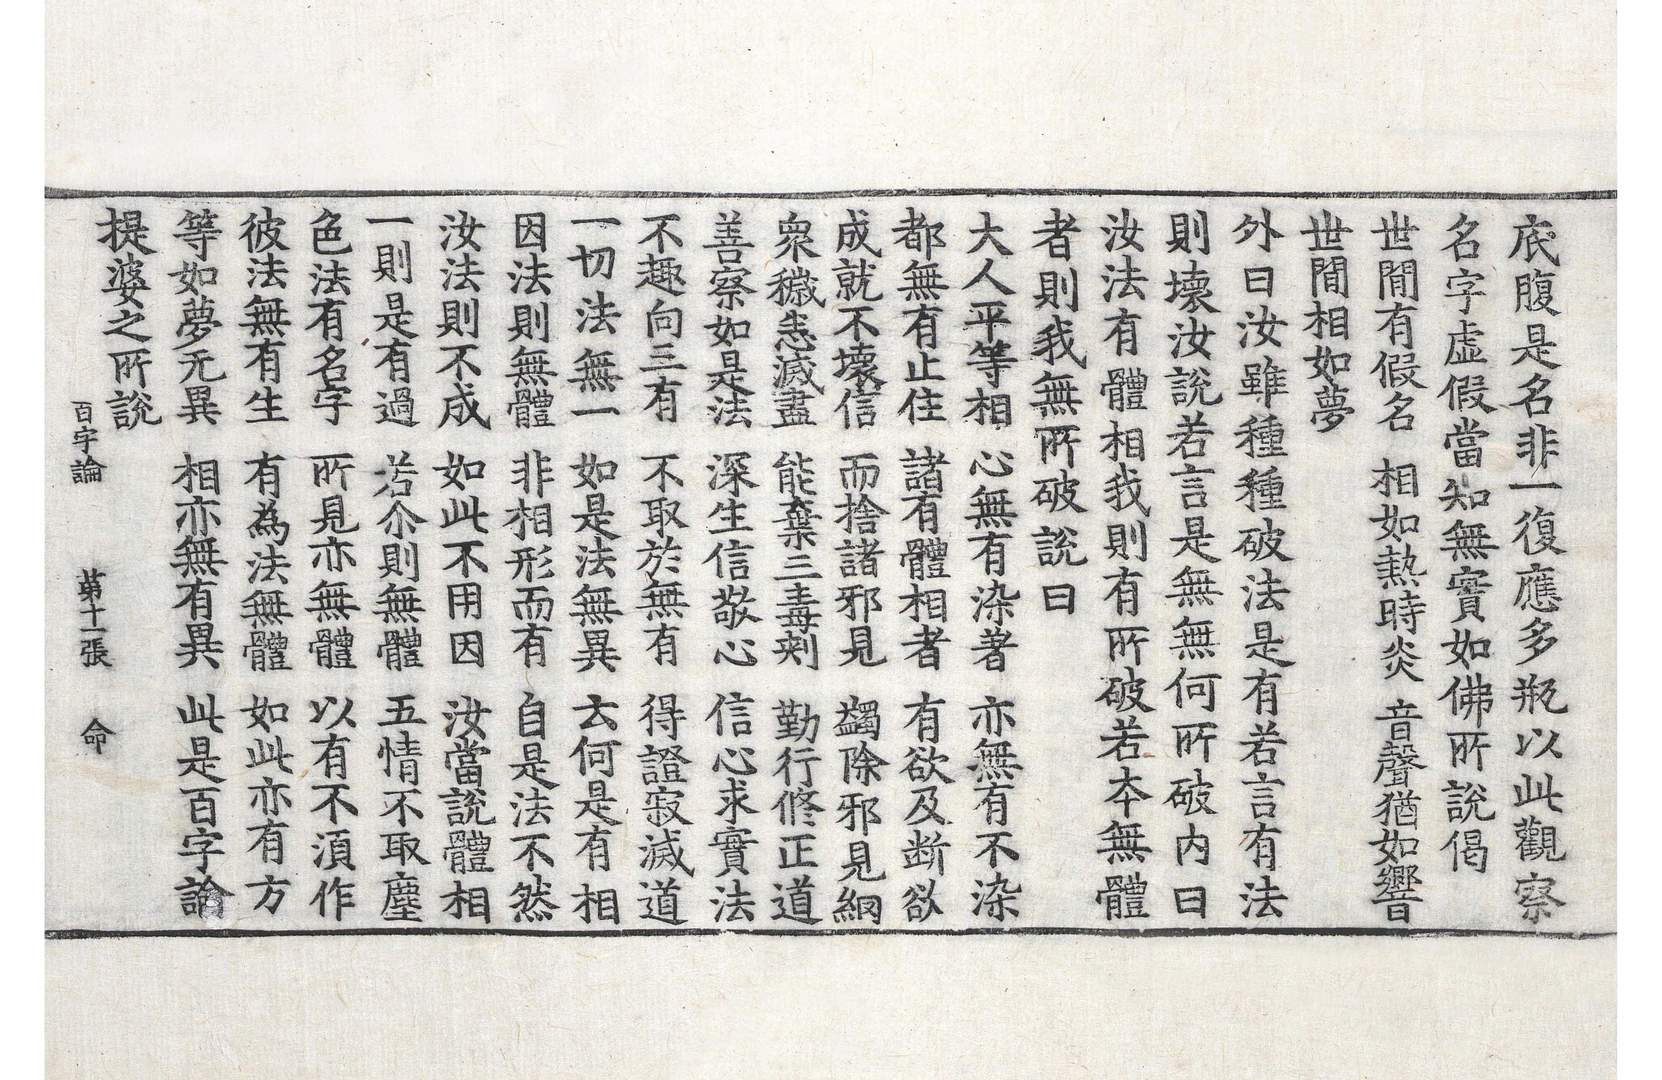 底腹是名非一復應多瓶以此觀察
名字虛假當知無實如佛所說偈
世閒有假名 相如熱時炎 音聲猶如響
世閒相如夢
外曰汝雖種種破法是有若言有法
則壞汝說若言是無無何所破內曰
汝法有體相我則有所破若本無體
者則我無所破說曰
大人平等相 心無有染著 亦無有不染
都無有止住 諸有體相者 有欲及断欲
成就不壞信 而捨諸邪見 蠲除邪見網
衆穢悉滅盡 能棄三毒刺 勤行修正道
善察如是法 深生信敬心 信心求實法
不趣向三有 不取於無有 得證寂滅道
一切法無一 如是法無異 云何是有相
因法則無體 非相形而有 自是法不然
汝法則不成 如此不用因 汝當說體相
一則是有過 若尒則無體 五情不取塵
色法有名字 所見亦無體 以有不須作
彼法無有生 有為法無體 如此亦有方
等如夢无異 相亦無有異 此是百字論
提婆之所說
百字論 第十一張 命